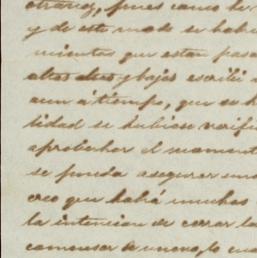 otra vez, pues como he
y de este modo se habi
mientos que estan pasa
altas altas y bajas escribi
aun á tiempo, que se h
lidad se hubiese verifi
aprobechar el momento
se pueda asegurar un
creo que habrá muchos
la intencion de cerrar la
comensar de nuevo, lo cua